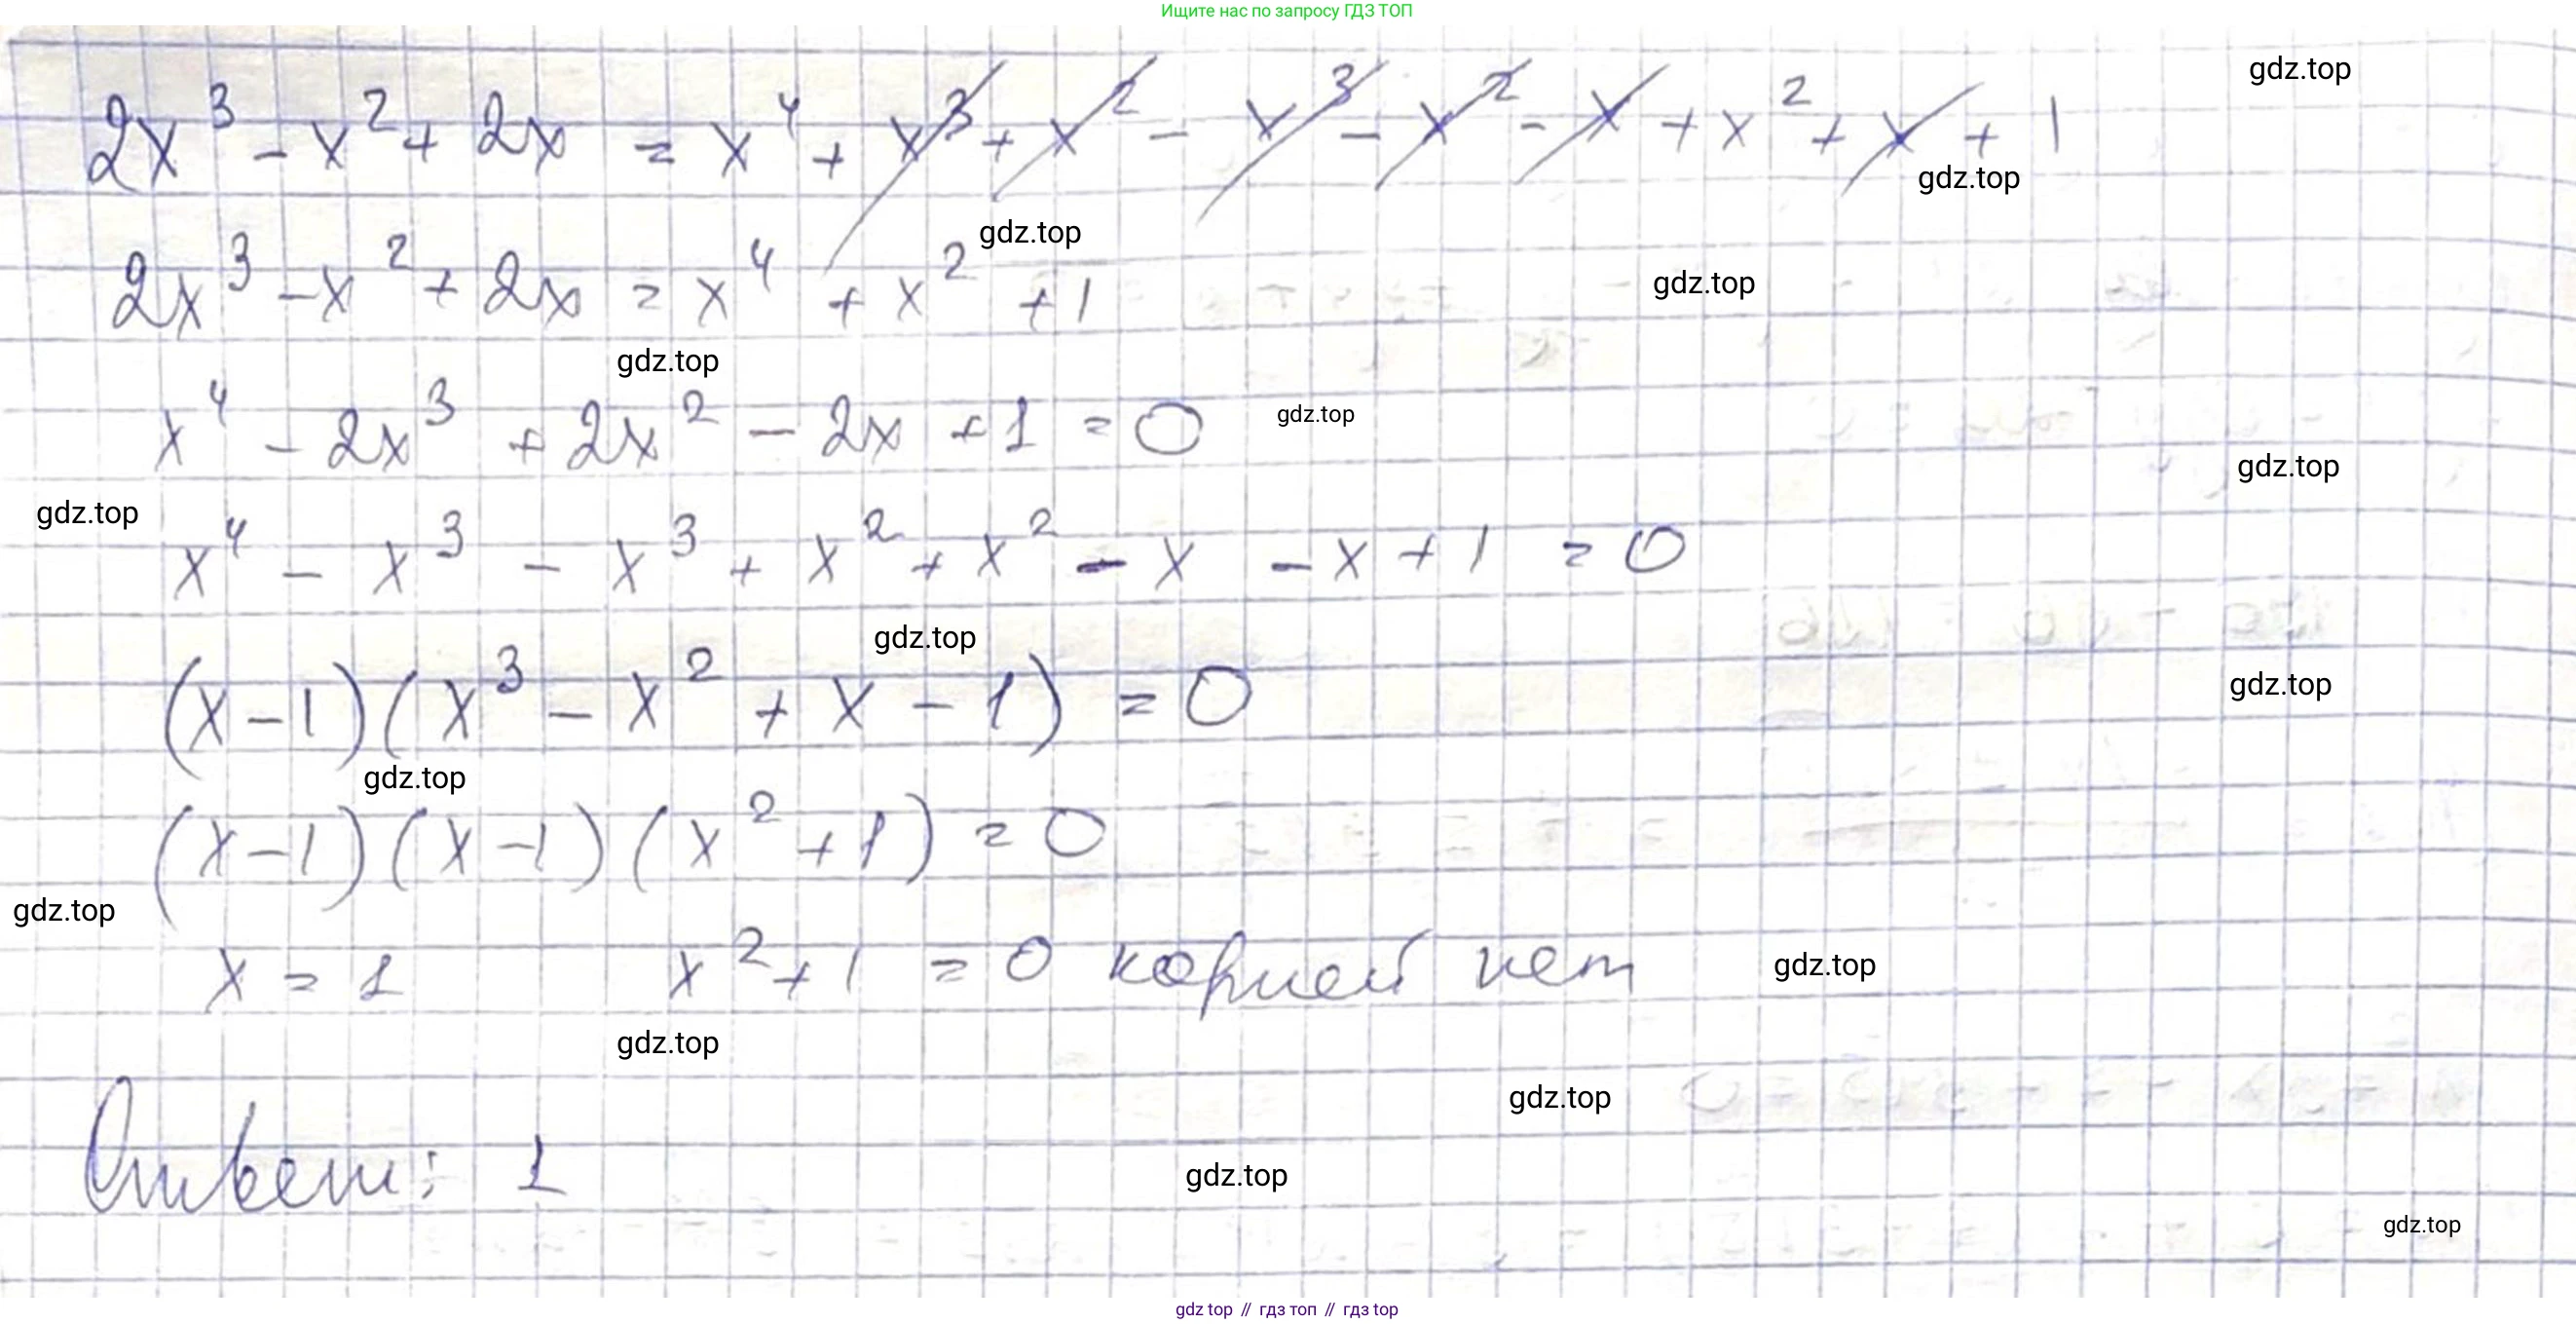 Ищите нас по запросу ГДЗ ТОП
gdz.top
2x³ - x² + 2x = x⁴ + x³ + x² - x³ - x² - x + x² + x + 1
gdz.top
gdz.top
2x³ - x² + 2x = x⁴ + x² + 1
gdz.top
gdz.top
x⁴ - 2x³ + 2x² - 2x + 1 = 0
gdz.top
gdz.top
gdz.top
x⁴ - x³ - x³ + x² + x² - x - x + 1 = 0
gdz.top
(x - 1)(x³ - x² + x - 1) = 0
gdz.top
gdz.top
(x - 1)(x - 1)(x² + 1) = 0
gdz.top
x = 1 x² + 1 = 0 корней нет
gdz.top
gdz.top
gdz.top
Ответ: 1
gdz.top
gdz.top
gdz top // гдз топ // гдз top